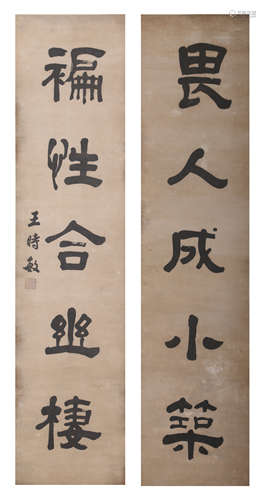 畏人成小築
褊性合幽棲
王時敏